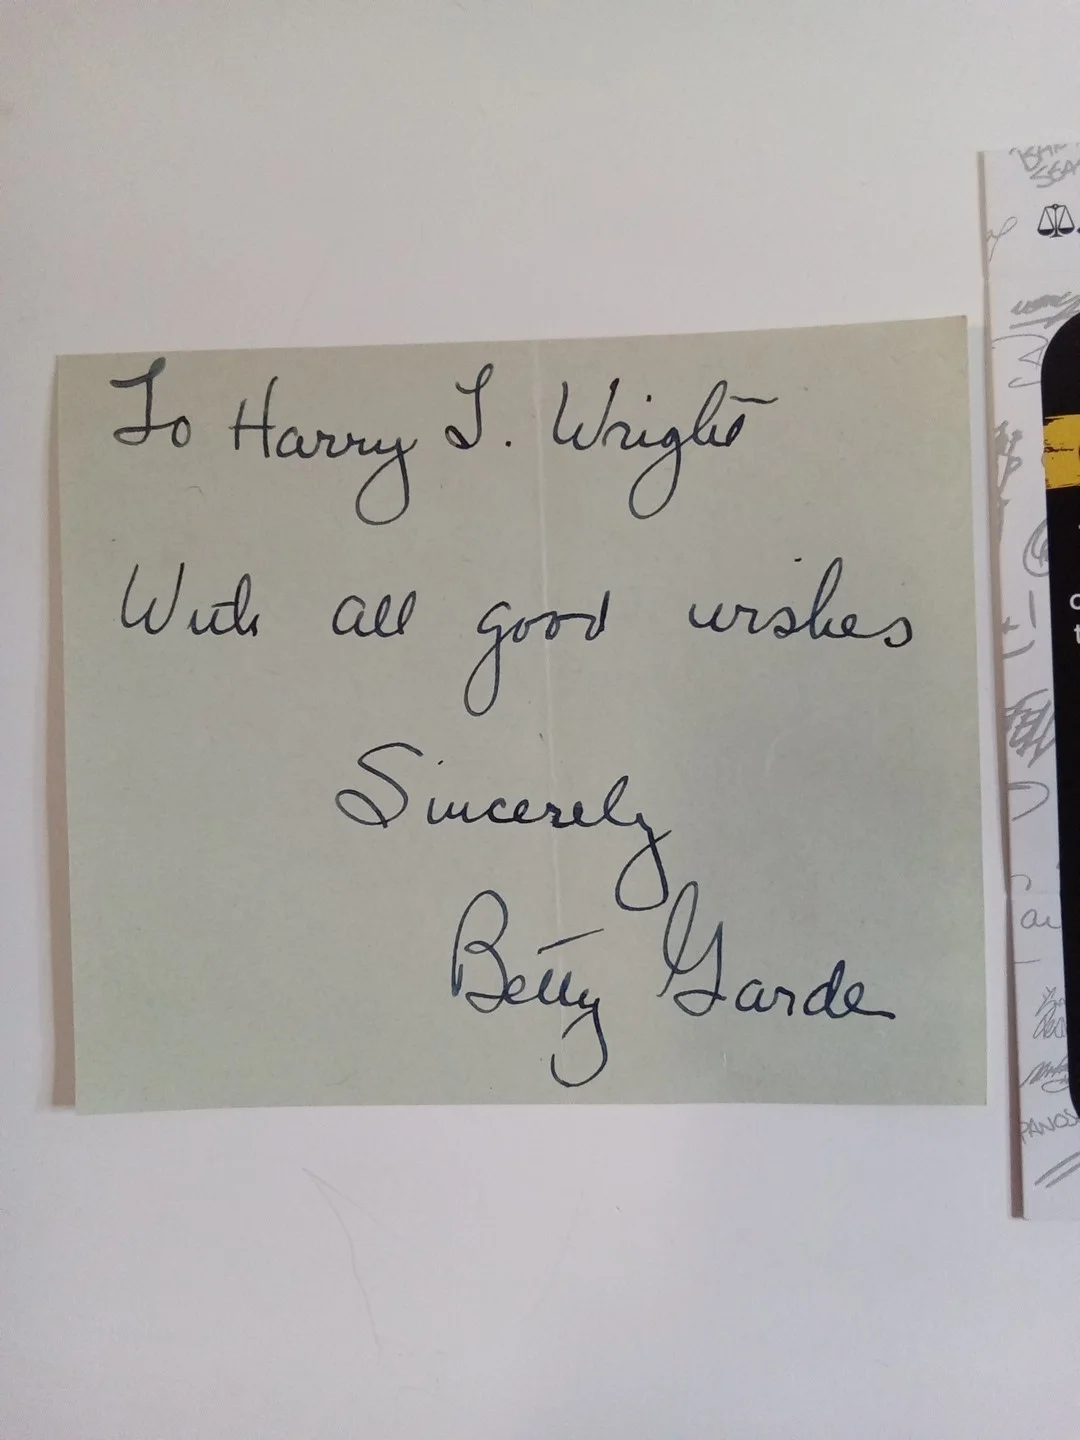 To Harry T. Wright
With all good wishes
Sincerely
Betty Garde
PANOS